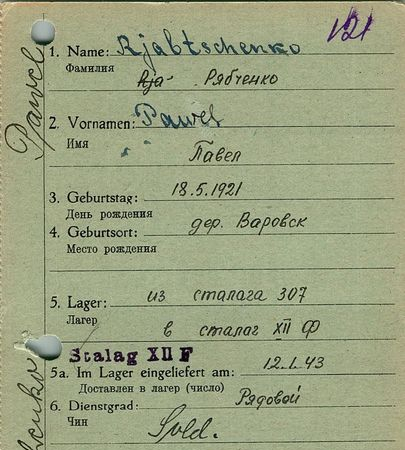 121
1. Name: Rjabtschenko
Фамилия Rja Рябченко
2. Vornamen: Pawel
Имя
Павел
3. Geburtstag: 18.5.1921
День рождения
4. Geburtsort: дер. Варовск
Место рождения
5. Lager: из сталага 307
Лагер
в сталаг XII Ф
Stalag XII F
5a. Im Lager eingeliefert am: 12.1.43
Доставлен в лагер (число)
6. Dienstgrad: Рядовой
Чин
Sold.
Pawel